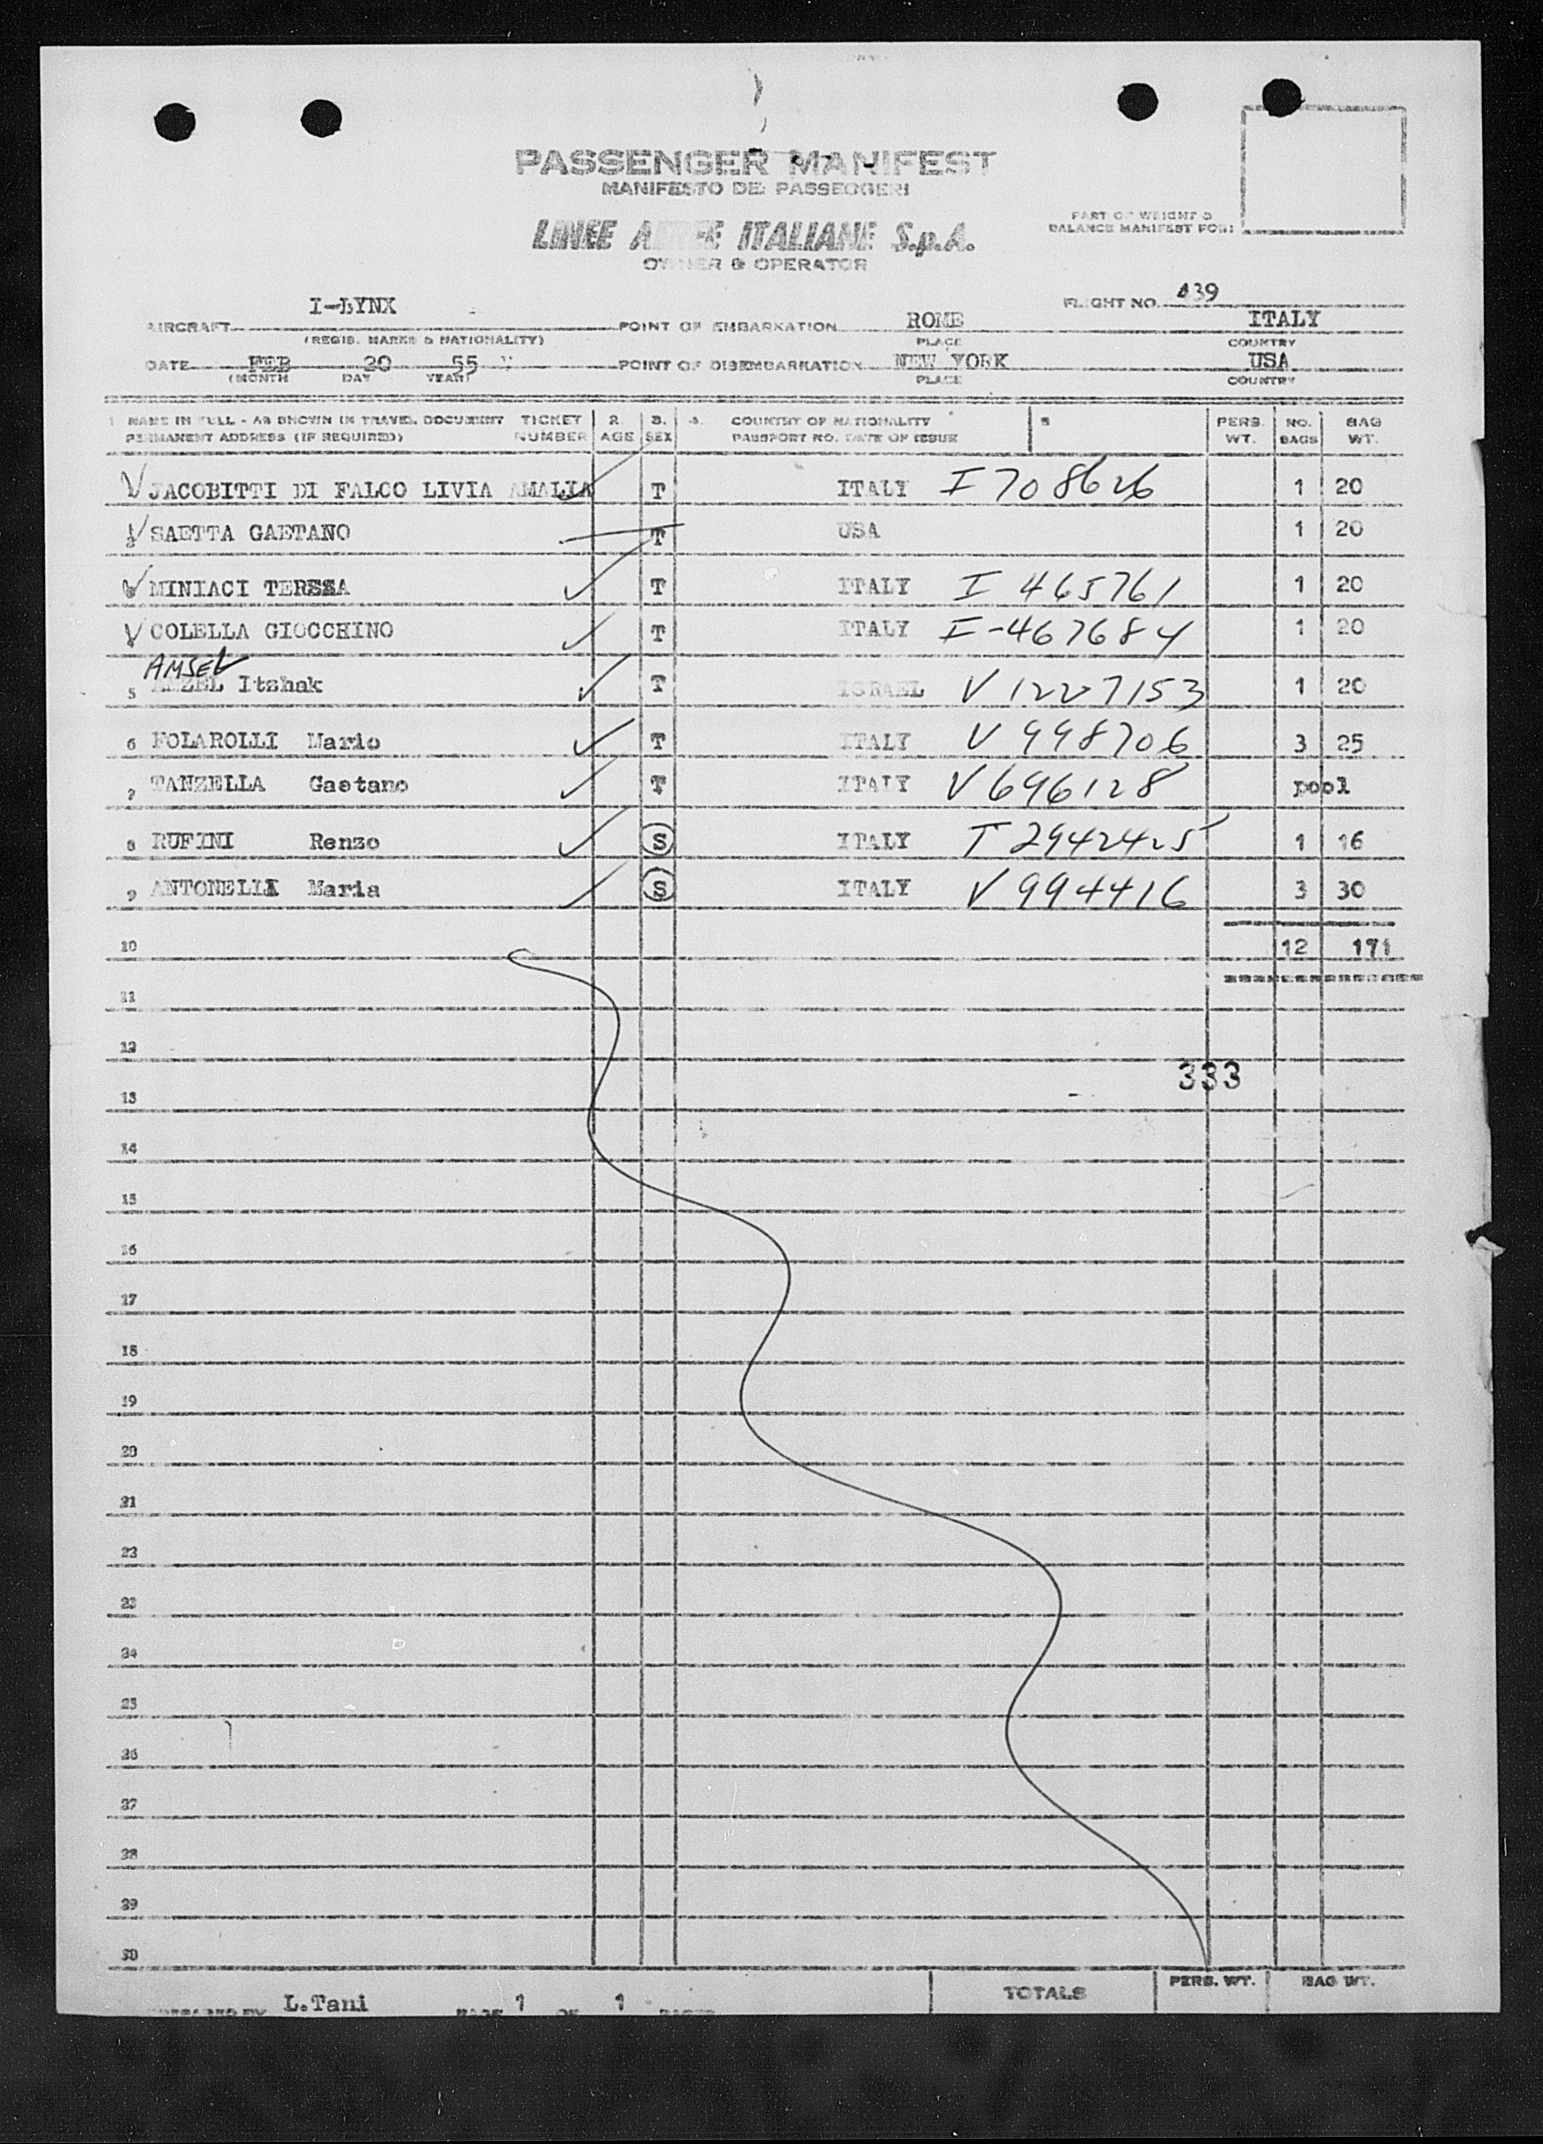 PASSENGER MANIFEST
MANIFESTO DEI PASSEGGERI
LINEE AEREE ITALIANE S.p.A.
OWNER & OPERATOR
PART OF WEIGHT &
BALANCE MANIFEST FOR:
FLIGHT NO. 439
AIRCRAFT I-LYNX POINT OF EMBARKATION ROME ITALY
(REGIS. MARKS & NATIONALITY) PLACE COUNTRY
DATE FEB 20 55 POINT OF DISEMBARKATION NEW YORK USA
(MONTH DAY YEAR) PLACE COUNTRY
1 NAME IN FULL - AS SHOWN IN TRAVEL DOCUMENT TICKET 2. 3. 4. COUNTRY OF NATIONALITY 5 PERS. NO. BAG
PERMANENT ADDRESS (IF REQUIRED) NUMBER AGE SEX PASSPORT NO. DATE OF ISSUE WT. BAGS WT.
JACOBITTI DI FALCO LIVIA AMALIA T ITALY I 708626 1 20
SAETTA GAETANO T USA 1 20
MINIACI TERESA T ITALY I 465761 1 20
COLELLA GIOCCHINO T ITALY I-467684 1 20
AMSEL
5 AMZEL Itshak T ISRAEL V 1227153 1 20
6 FOLAROLLI Mario T ITALY V 998706 3 25
7 TANZELLA Gaetano T ITALY V696128 pool
8 RUFINI Renzo S ITALY T 2942425 1 16
9 ANTONELLI Maria S ITALY V 994416 3 30
10 12 171
11
12
333
13
14
15
16
17
18
19
20
21
22
23
24
25
26
27
28
29
30
TOTALS PERS. WT. BAG WT.
PREPARED BY L.Tani PAGE 1 OF 1 PAGES